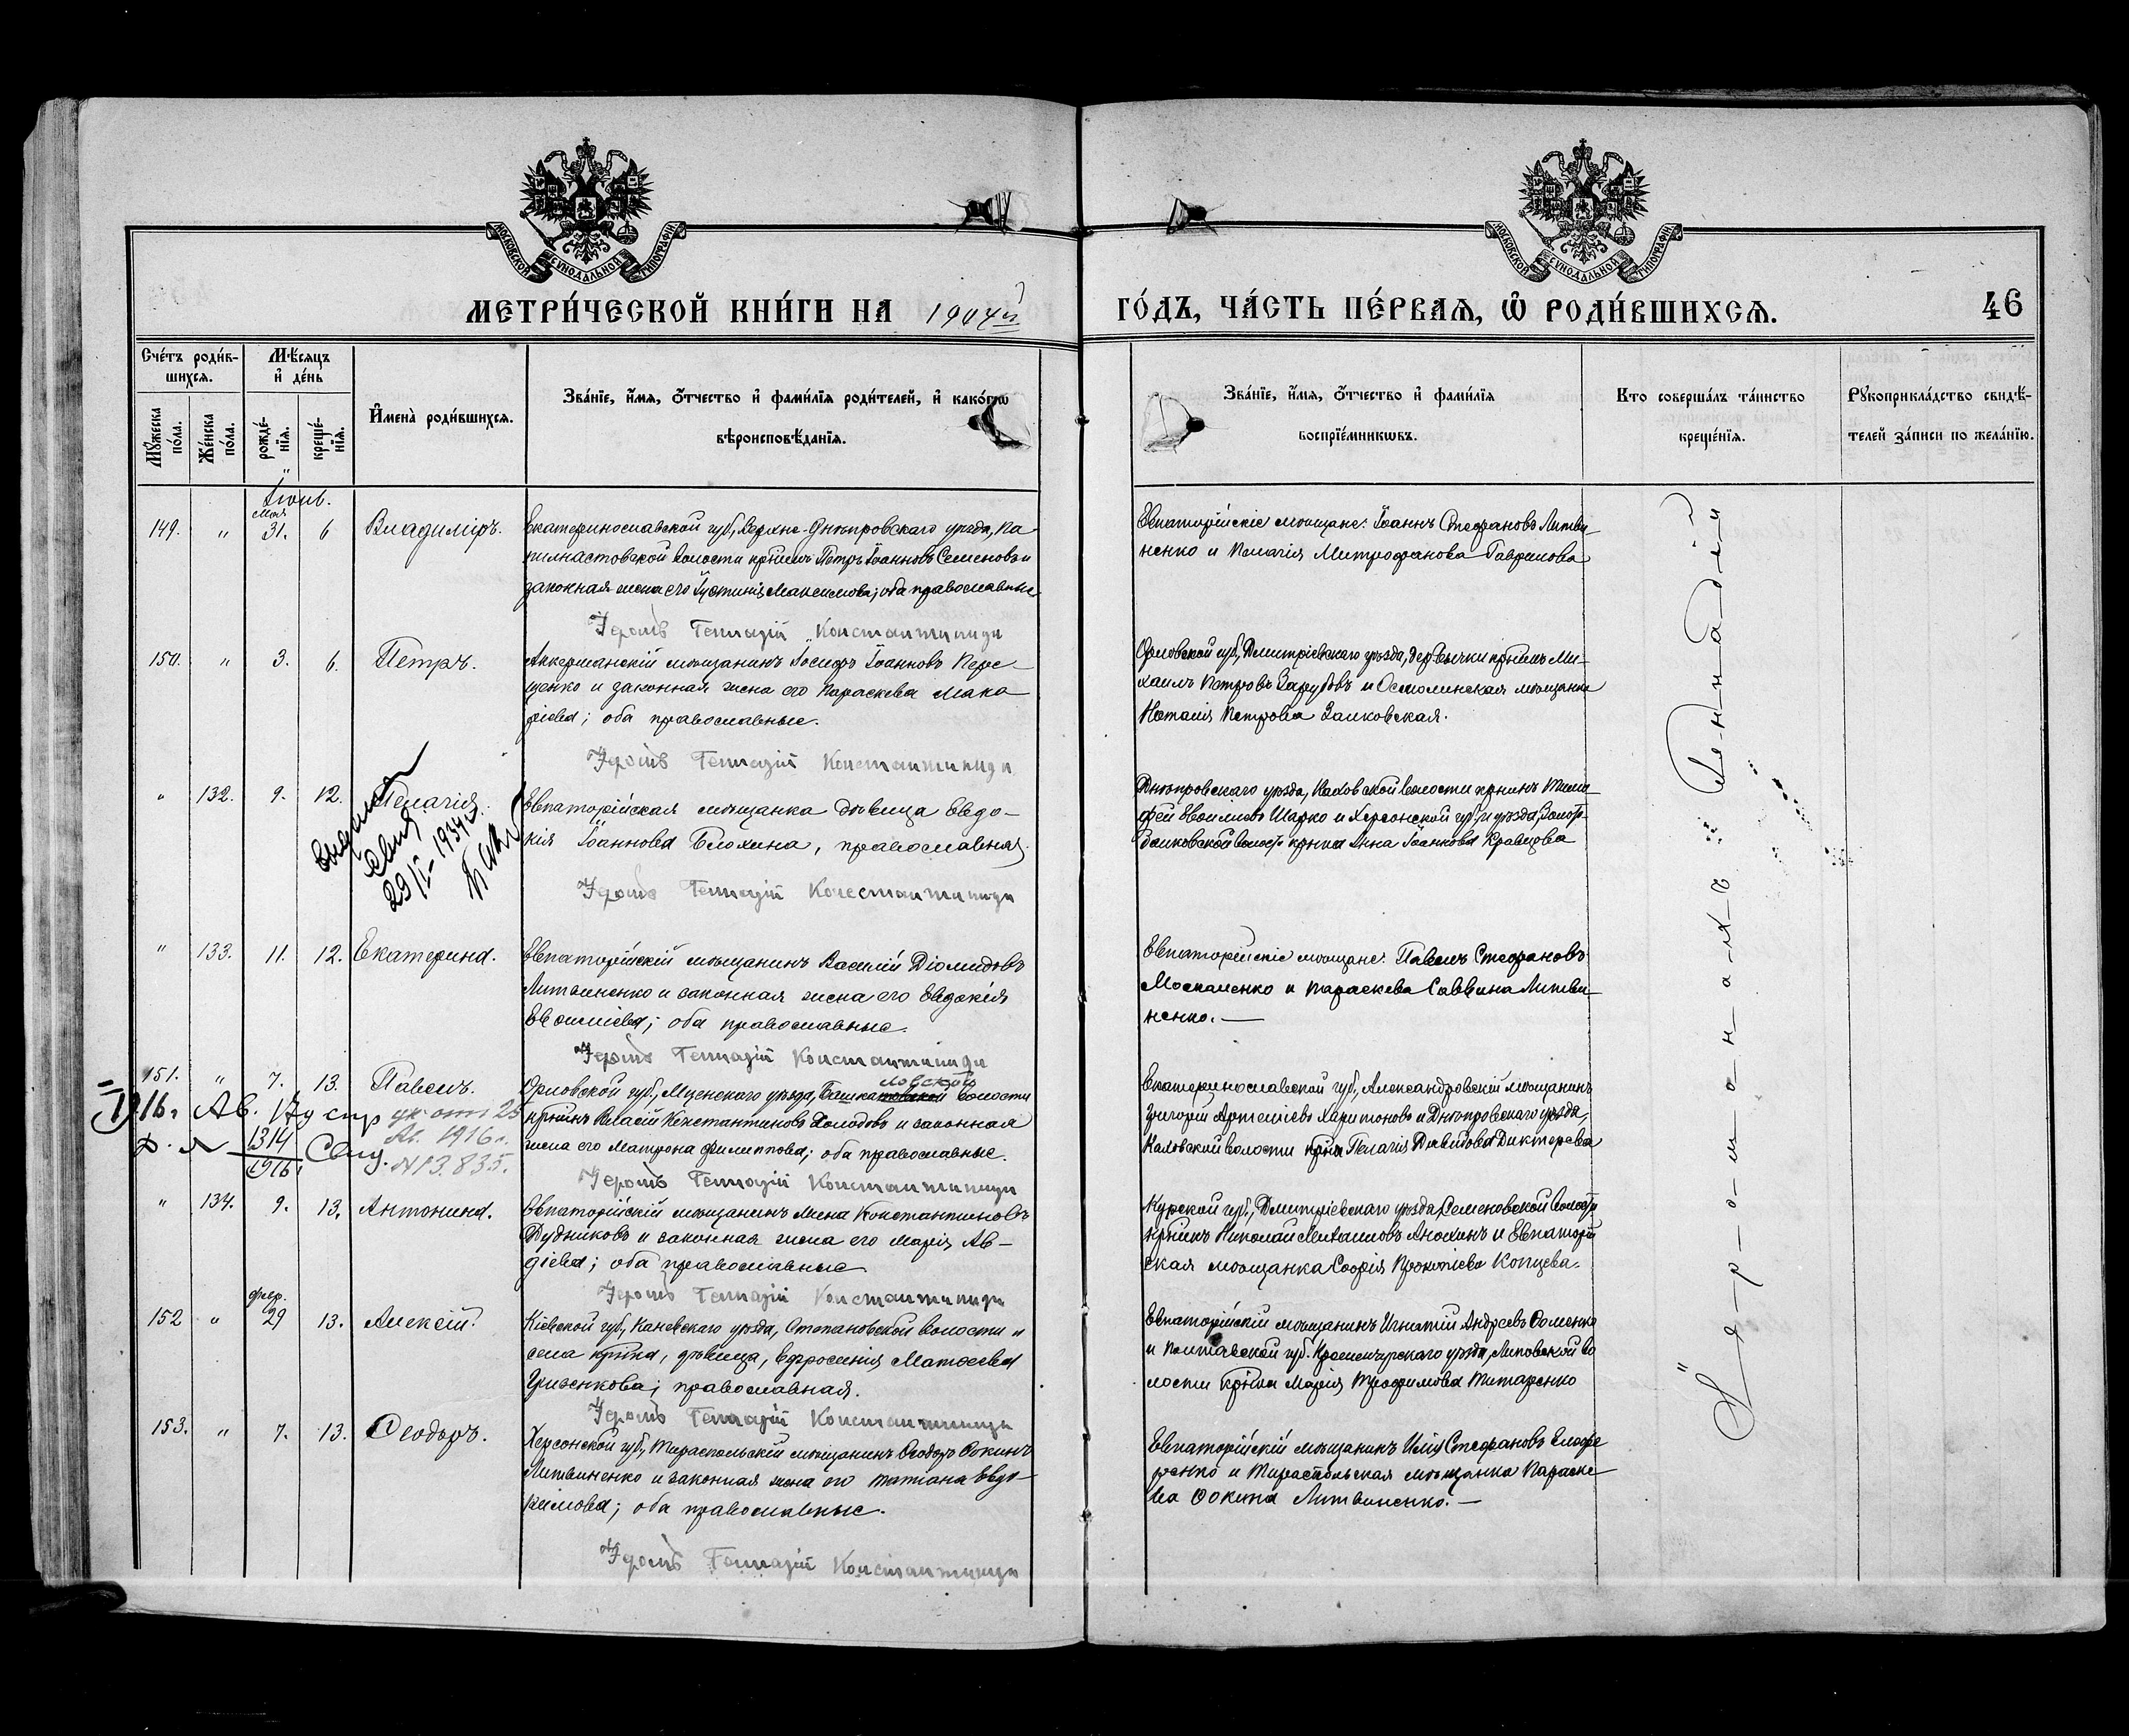 МОСКОВСКОЙ СѴНОДАЛЬНОЙ ТИПОГРАФІИ
МОСКОВСКОЙ СѴНОДАЛЬНОЙ ТИПОГРАФІИ
МЕТРИ́ЧЕСКОЙ КНИ́ГИ НА 1904й
ГО́ДЪ, ЧА́СТЬ ПЕ́РВАѦ, Ѿ РОДИ́ВШИХСѦ.
46
Сче́тъ роди́в-
шихсѧ.
Мꙋжеска по́ла.
Же́нска по́ла.
Мѣ́сѧцъ
и де́нь
рожде́-
нїѧ.
креще́-
нїѧ.
Имена̀ роди́вшихсѧ.
Зва́нїе, и́мѧ, ѻ́тчество и фами́лїѧ роди́телей, и како́гѡ
вѣроисповѣ́данїѧ.
Зва́нїе, и́мѧ, ѻ́тчество и фами́лїѧ
воспрїе́мникѡвъ.
Кто соверша́лъ та́инство
креще́нїѧ.
Рꙋкоприкла́дство свидѣ́-
телей за́писи по жела́нїю.
Іюнь.
149. " Мая 31. 6 Владиміръ.
Екатеринославской губ., Верхне-Днѣпровскаго уѣзда,
волости кр-нинъ Петръ Іоанновъ Семеновъ и
законная жена его Іустинія Максимова; оба православные
Іеромъ Геннадій Константиниди
Евпаторійскіе мѣщане: Іоаннъ Стефановъ Литви-
ненко и Пелагія Митрофанова Гаврилова
150. " 3. 6. Петръ.
Аккерманскій мѣщанинъ Іосифъ Іоанновъ Пере-
щенко и законная жена его Параскева Мака-
ріева; оба православные.
Іеромъ Геннадій Константиниди
Орловской губ., Дмитріевскаго уѣзда, кр-нинъ Ми-
хаилъ Петровъ Зарубовъ и мѣщанка
Наталія Петрова Залковская.
" 132. 9. 12. Пелагія.
Евпаторійская мѣщанка дѣвица Евдо-
кія Іоаннова Блохина, православная.
Іеромъ Геннадій Константиниди
29/IX 1934
Днѣпровскаго уѣзда, Каховской волости кр-нинъ Тимо-
фей Шарко и Херсонской губ. и уѣзда,
волости кр-нка Анна Іоаннова Кравцова
" 133. 11. 12. Екатерина.
Евпаторійскій мѣщанинъ Василій Діомидовъ
Литвиненко и законная жена его Евдокія
оба православные.
Іеромъ Геннадій Константиниди
Евпаторійскіе мѣщане: Павелъ Стефановъ
Москаленко и Параскева Саввина Литви-
ненко.—
151. " 7. 13. Павелъ.
Орловской губ., Мценскаго уѣзда, волости
кр-нинъ Власій Константиновъ Холодовъ и законная
жена его Матрона Филиппова; оба православные.
Іеромъ Геннадій Константиниди
1916 г. Ав. 17 ук. отъ 25
Ав. 1916 г.
1314 1916 N 13.835.
Екатеринославской губ., Александровскій мѣщанинъ
Григорій Артеміевъ Харитоновъ и Днѣпровскаго уѣзда,
Каховской волости кр-нка Пелагія Давидова Диктерева
" 134. 9. 13. Антонина.
Евпаторійскій мѣщанинъ Мина Константиновъ
Дудниковъ и законная жена его Марія Ав-
діева; оба православные
Іеромъ Геннадій Константиниди
Курской губ., Дмитріевскаго уѣзда, Семеновской волости
кр-нинъ Николай Михаиловъ Анохинъ и Евпаторій-
ская мѣщанка Софія Прокопіева Копцева.
152 " февр. 29 13. Алексій.
Кіевской губ., Каневскаго уѣзда, Степановской волости и
села кр-нка, дѣвица, Евфросинія Матѳеева
Гриженкова; православная.
Іеромъ Геннадій Константиниди
Евпаторійскій мѣщанинъ Игнатій Андреевъ Ѳоменко
и Полтавской губ. Кременчугскаго уѣзда, Липовской во-
лости кр-нка Марія Трофимова Титаренко
153. " 7. 13. Ѳеодоръ.
Херсонской губ., Тираспольскій мѣщанинъ Ѳеодоръ Ѳокинъ
Литвиненко и законная жена его Татіана Евдо-
кимова; оба православные.
Іеромъ Геннадій Константиниди
Евпаторійскій мѣщанинъ Илія Стефановъ
и Тираспольская мѣщанка Параске-
ва Ѳокина Литвиненко.—
І-е-р-о-м-о-н-а-х-ъ Геннадій